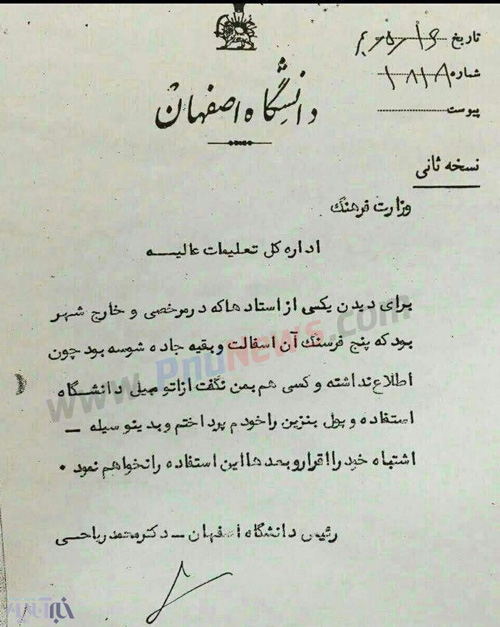 دانشگاه اصفهان
تاریخ
شماره ۱۸۱۸
پیوست
نسخه ثانی
وزارت فرهنگ
اداره کل تعلیمات عالیه
برای دیدن یکی از استادها که در مرخصی و خارج شهر
بود که پنج فرسنگ آن اسفالت و بقیه جاده شوسه بود چون
اطلاع نداشته و کسی هم بمن نگفت از اتومبیل دانشگاه
استفاده و پول بنزین را خودم پرداختم و بدینوسیله –
اشتباه خود را اقرار و بعدها این استفاده را نخواهم نمود ۰
رئیس دانشگاه اصفهان – دکتر محمد ریاحی
www.PnuNews.com
خبرآنلاین